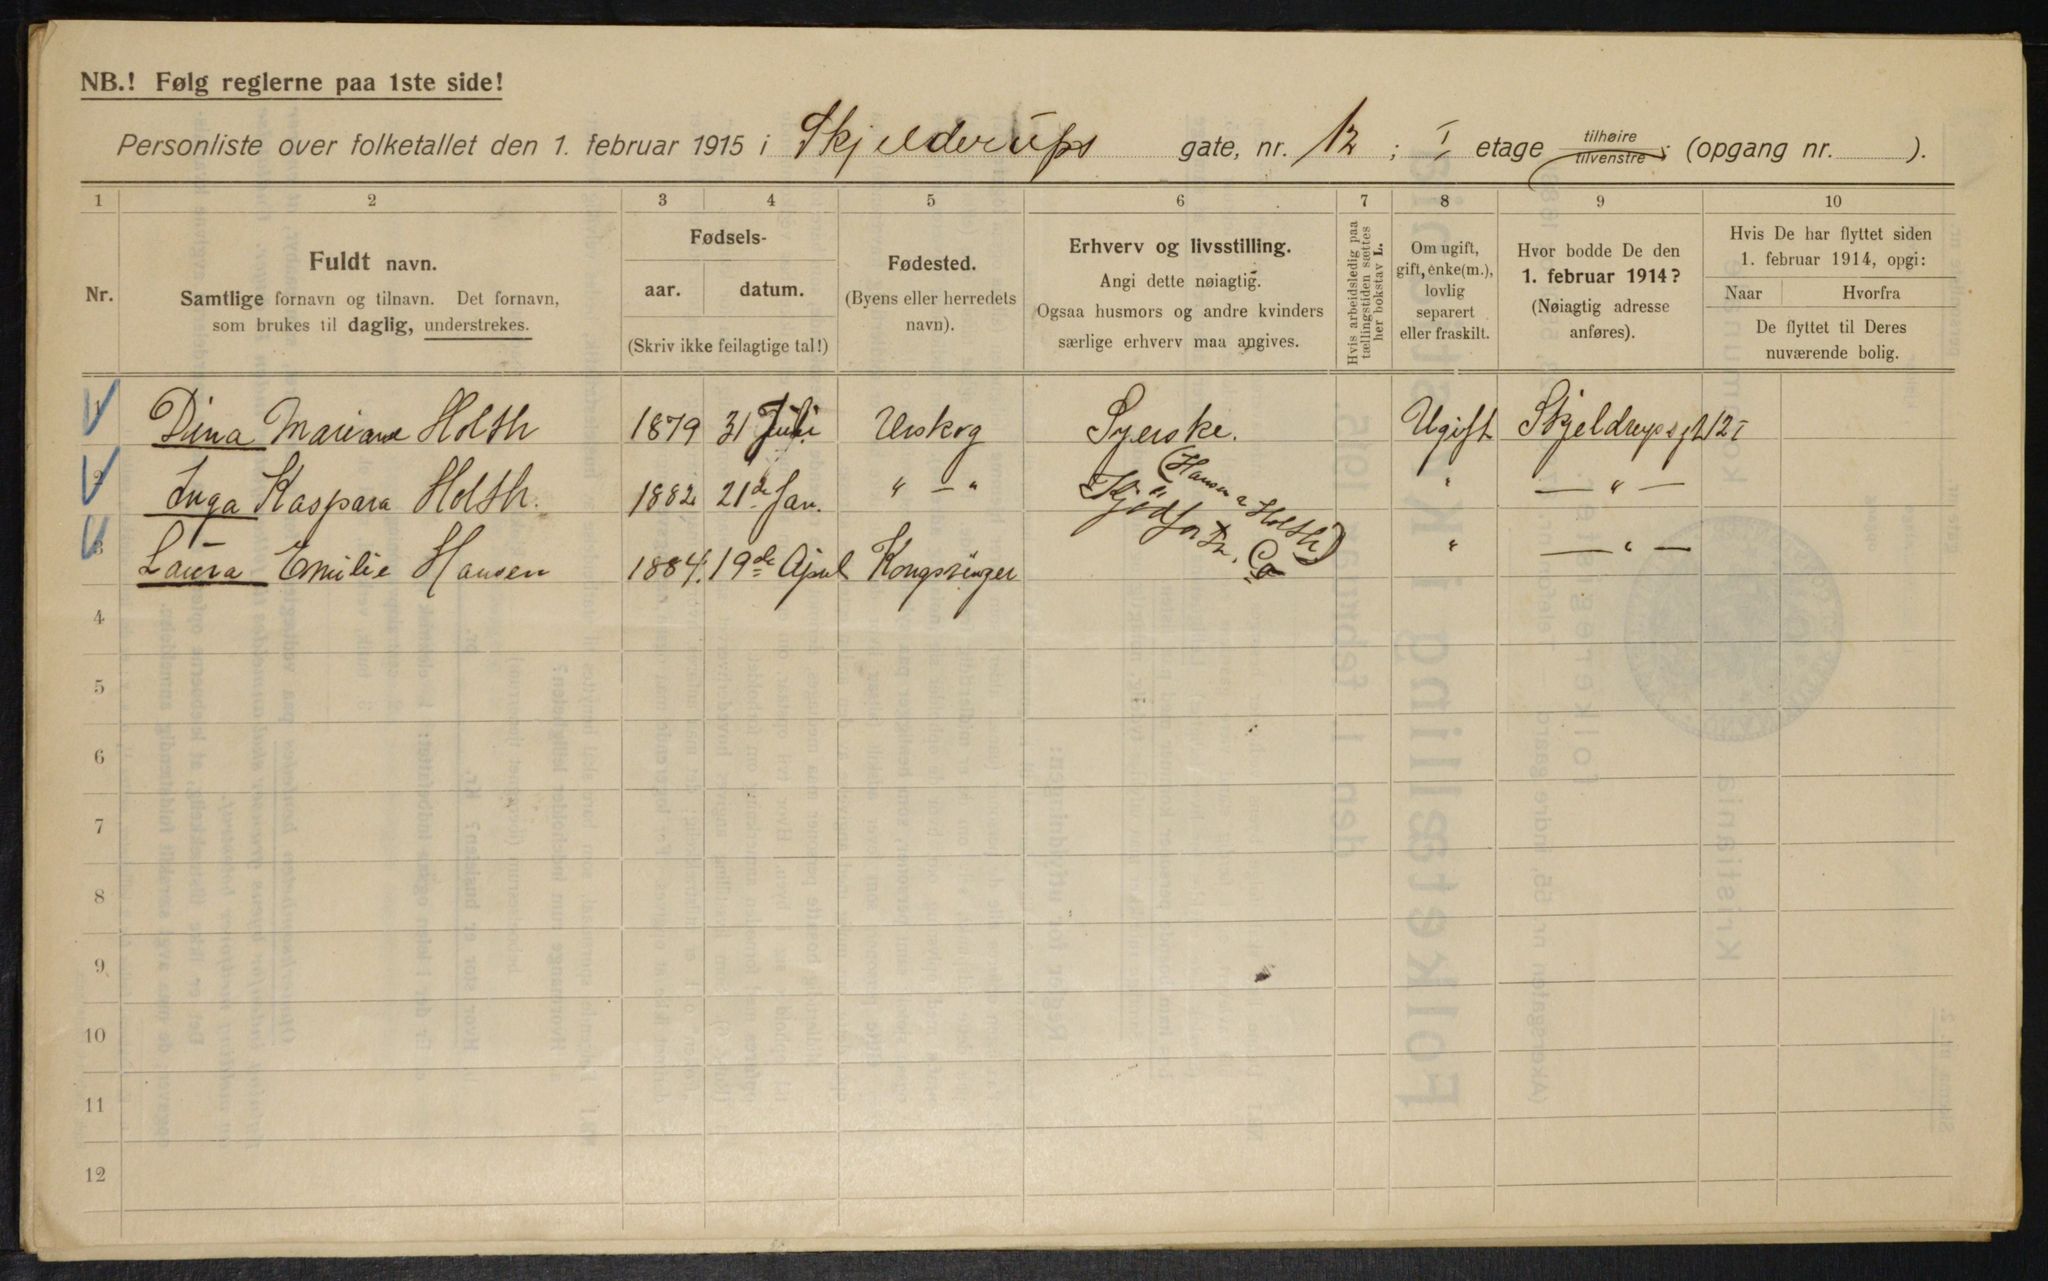 NB.! Følg reglerne paa 1ste side!
Personliste over folketallet den 1. februar 1915 i Skjelderups gate, nr. 12 ; I etage tilhøire / tilvenstre ; (opgang nr. ).
1 2 3 4 5 6 7 8 9 10
Nr.
Fuldt navn.
Samtlige fornavn og tilnavn. Det fornavn,
som brukes til daglig, understrekes.
Fødsels-
aar. datum.
(Skriv ikke feilagtige tal!)
Fødested.
(Byens eller herredets
navn).
Erhverv og livsstilling.
Angi dette nøiagtig.
Ogsaa husmors og andre kvinders
særlige erhverv maa angives.
Hvis arbeidsledig paa
tællingstiden sættes
her bokstav L.
Om ugift,
gift, enke(m.),
lovlig
separert
eller fraskilt.
Hvor bodde De den
1. februar 1914?
(Nøiagtig adresse
anføres).
Hvis De har flyttet siden
1. februar 1914, opgi:
Naar Hvorfra
De flyttet til Deres
nuværende bolig.
1 Dina Mariane Holth 1879 31 Juli Urskog Syerske. Ugift Skjeldrupsgt 12 I
2 Inga Kaspara Holth. 1882 21de Jan. " — " " — " —
(Hansen & Holth)
3 Laura Emilie Hansen 1884. 19de April Kongsvinger " — " —
4
5
6
7
8
9
10
11
12